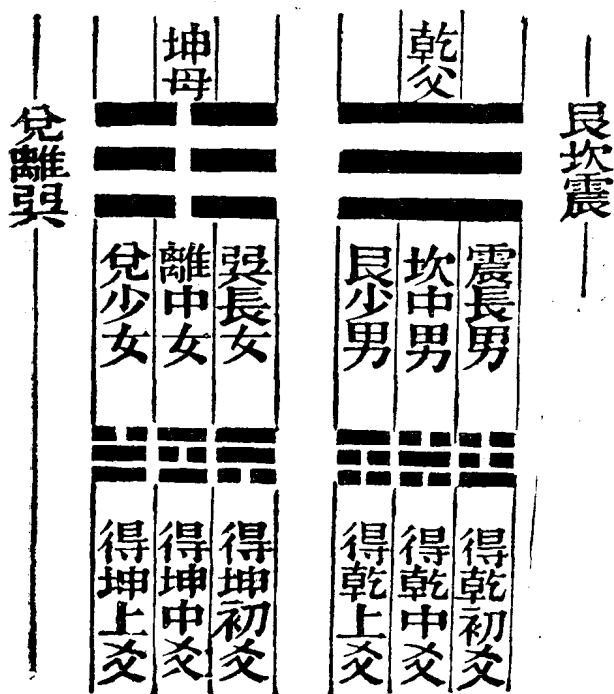 艮坎震
乾父
震長男
坎中男
艮少男
得乾初爻
得乾中爻
得乾上爻
坤母
巽長女
離中女
兌少女
得坤初爻
得坤中爻
得坤上爻
兌離巽